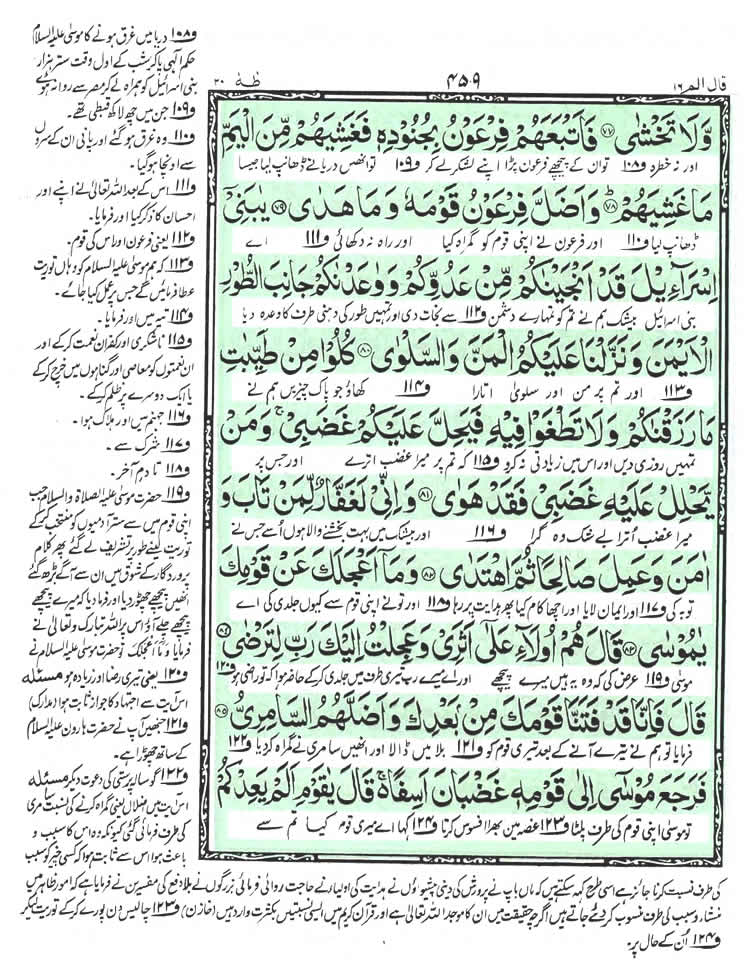 قال الم ١٦
٤٥٩
طٰهٰ ٢٠
وَّلَا تَخْشٰى ﴿٧٧﴾ فَاَتْبَعَهُمْ فِرْعَوْنُ بِجُنُوْدِهٖ فَغَشِيَهُمْ مِّنَ الْيَمِّ
اور نہ خطرہ ف١٠٨ تو ان کے پیچھے فرعون پڑا اپنے لشکر لے کر ف١٠٩ تو انھیں دریا نے ڈھانپ لیا جیسا
مَا غَشِيَهُمْ ﴿٧٨﴾ وَاَضَلَّ فِرْعَوْنُ قَوْمَهٗ وَمَا هَدٰى ﴿٧٩﴾ يٰبَنِيْٓ
ڈھانپ لیا ف١١٠ اور فرعون نے اپنی قوم کو گمراہ کیا اور راہ نہ دکھائی ف١١١ اے
اِسْرَآءِيْلَ قَدْ اَنْجَيْنٰكُمْ مِّنْ عَدُوِّكُمْ وَوٰعَدْنٰكُمْ جَانِبَ الطُّوْرِ
بنی اسرائیل بیشک ہم نے تم کو تمہارے دشمن ف١١٢ سے نجات دی اور تمہیں طور کی دہنی طرف کا وعدہ دیا
الْاَيْمَنَ وَنَزَّلْنَا عَلَيْكُمُ الْمَنَّ وَالسَّلْوٰى ﴿٨٠﴾ كُلُوْا مِنْ طَيِّبٰتِ
ف١١٣ اور تم پر من اور سلویٰ اتارا ف١١٤ کھاؤ جو پاک چیزیں ہم نے
مَا رَزَقْنٰكُمْ وَلَا تَطْغَوْا فِيْهِ فَيَحِلَّ عَلَيْكُمْ غَضَبِيْ ۚ وَمَنْ
تمہیں روزی دیں اور اس میں زیادتی نہ کرو ف١١٥ کہ تم پر میرا غضب اترے اور جس پر
يَّحْلِلْ عَلَيْهِ غَضَبِيْ فَقَدْ هَوٰى ﴿٨١﴾ وَاِنِّيْ لَغَفَّارٌ لِّمَنْ تَابَ وَ
میرا غضب اترا بے شک وہ گرا ف١١٦ اور بیشک میں بہت بخشنے والا ہوں اُسے جس نے
اٰمَنَ وَعَمِلَ صَالِحًا ثُمَّ اهْتَدٰى ﴿٨٢﴾ وَمَآ اَعْجَلَكَ عَنْ قَوْمِكَ
توبہ کی ف١١٧ اور ایمان لایا اور اچھا کام کیا پھر ہدایت پر رہا ف١١٨ اور تو نے اپنی قوم سے کیوں جلدی کی اے
يٰمُوْسٰى ﴿٨٣﴾ قَالَ هُمْ اُولَآءِ عَلٰٓى اَثَرِيْ وَعَجِلْتُ اِلَيْكَ رَبِّ لِتَرْضٰى ﴿٨٤﴾
موسیٰ ف١١٩ عرض کی کہ وہ یہ ہیں میرے پیچھے اور اے میرے رب تیری طرف میں جلدی کر کے حاضر ہوا کہ تو راضی ہو ف١٢٠
قَالَ فَاِنَّا قَدْ فَتَنَّا قَوْمَكَ مِنْۢ بَعْدِكَ وَاَضَلَّهُمُ السَّامِرِيُّ ﴿٨٥﴾
فرمایا تو ہم نے تیرے آنے کے بعد تیری قوم کو ف١٢١ بلا میں ڈالا اور انھیں سامری نے گمراہ کر دیا ف١٢٢
فَرَجَعَ مُوْسٰٓى اِلٰى قَوْمِهٖ غَضْبَانَ اَسِفًا ۚ قَالَ يٰقَوْمِ اَلَمْ يَعِدْكُمْ
تو موسیٰ اپنی قوم کی طرف پلٹا ف١٢٣ غصہ میں بھرا افسوس کرتا ف١٢٤ کہا اے میری قوم کیا تم سے
ف١٠٨ دریا میں غرق ہونے کا موسیٰ علیہ السلام
حکم الٰہی پا کر شب کے اول وقت ستر ہزار
بنی اسرائیل کو ہمراہ لے کر مصر سے روانہ ہوئے
ف١٠٩ جن میں چھ لاکھ قبطی تھے۔
ف١١٠ وہ غرق ہو گئے اور پانی ان کے سروں
سے اونچا ہو گیا۔
ف١١١ اس کے بعد اللہ تعالیٰ نے اپنے اور
احسان کا ذکر کیا اور فرمایا۔
ف١١٢ یعنی فرعون اور اس کی قوم۔
ف١١٣ کہ ہم موسیٰ علیہ السلام کو وہاں توریت
عطا فرمائیں گے جس پر عمل کیا جائے۔
ف١١٤ تیہ میں اور فرمایا۔
ف١١٥ ناشکری اور کفران نعمت کر کے اور
ان نعمتوں کو معاصی اور گناہوں میں خرچ کر کے
یا ایک دوسرے پر ظلم کر کے۔
ف١١٦ جہنم میں اور ہلاک ہوا۔
ف١١٧ شرک سے۔
ف١١٨ تا دم آخر۔
ف١١٩ حضرت موسیٰ علیہ الصلاۃ والسلام جب
اپنی قوم میں سے ستر آدمیوں کو منتخب کر کے
توریت لینے طور پر تشریف لے گئے پھر کلام
پروردگار کے شوق میں ان سے آگے بڑھ گئے
انھیں پیچھے چھوڑ دیا اور فرما دیا کہ میرے پیچھے
پیچھے چلے آؤ اس پر اللہ تبارک و تعالیٰ نے
فرمایا وَمَآ اَعْجَلَكَ تو حضرت موسیٰ علیہ السلام نے
ف١٢٠ یعنی تیری رضا اور زیادہ ہو مسئلہ
اس آیت سے اجتہاد کا جواز ثابت ہوا (مدارک)
ف١٢١ جنھیں آپ نے حضرت ہارون علیہ السلام
کے ساتھ چھوڑا ہے۔
ف١٢٢ گوسالہ پرستی کی دعوت دے کر مسئلہ
اس آیت میں اضلال یعنی گمراہ کرنے کی نسبت سامری
کی طرف فرمائی گئی کیونکہ وہ اس کا سبب و
باعث ہوا اس سے ثابت ہوا کہ کسی چیز کو سبب
کی طرف نسبت کرنا جائز ہے اسی طرح کہہ سکتے ہیں کہ ماں باپ نے پرورش کی دینی پیشواؤں نے ہدایت کی اولیاء نے حاجت روائی فرمائی بزرگوں نے بلا دفع کی مفسرین نے فرمایا ہے کہ امور ظاہر میں
منشاء و سبب کی طرف منسوب کر دیے جاتے ہیں اگرچہ حقیقت میں ان کا موجد اللہ تعالیٰ ہے اور قرآن کریم میں ایسی نسبتیں بکثرت وارد ہیں (خازن) ف١٢٣ چالیس دن پورے کر کے توریت لیکر
ف١٢٤ اُن کے حال پر۔